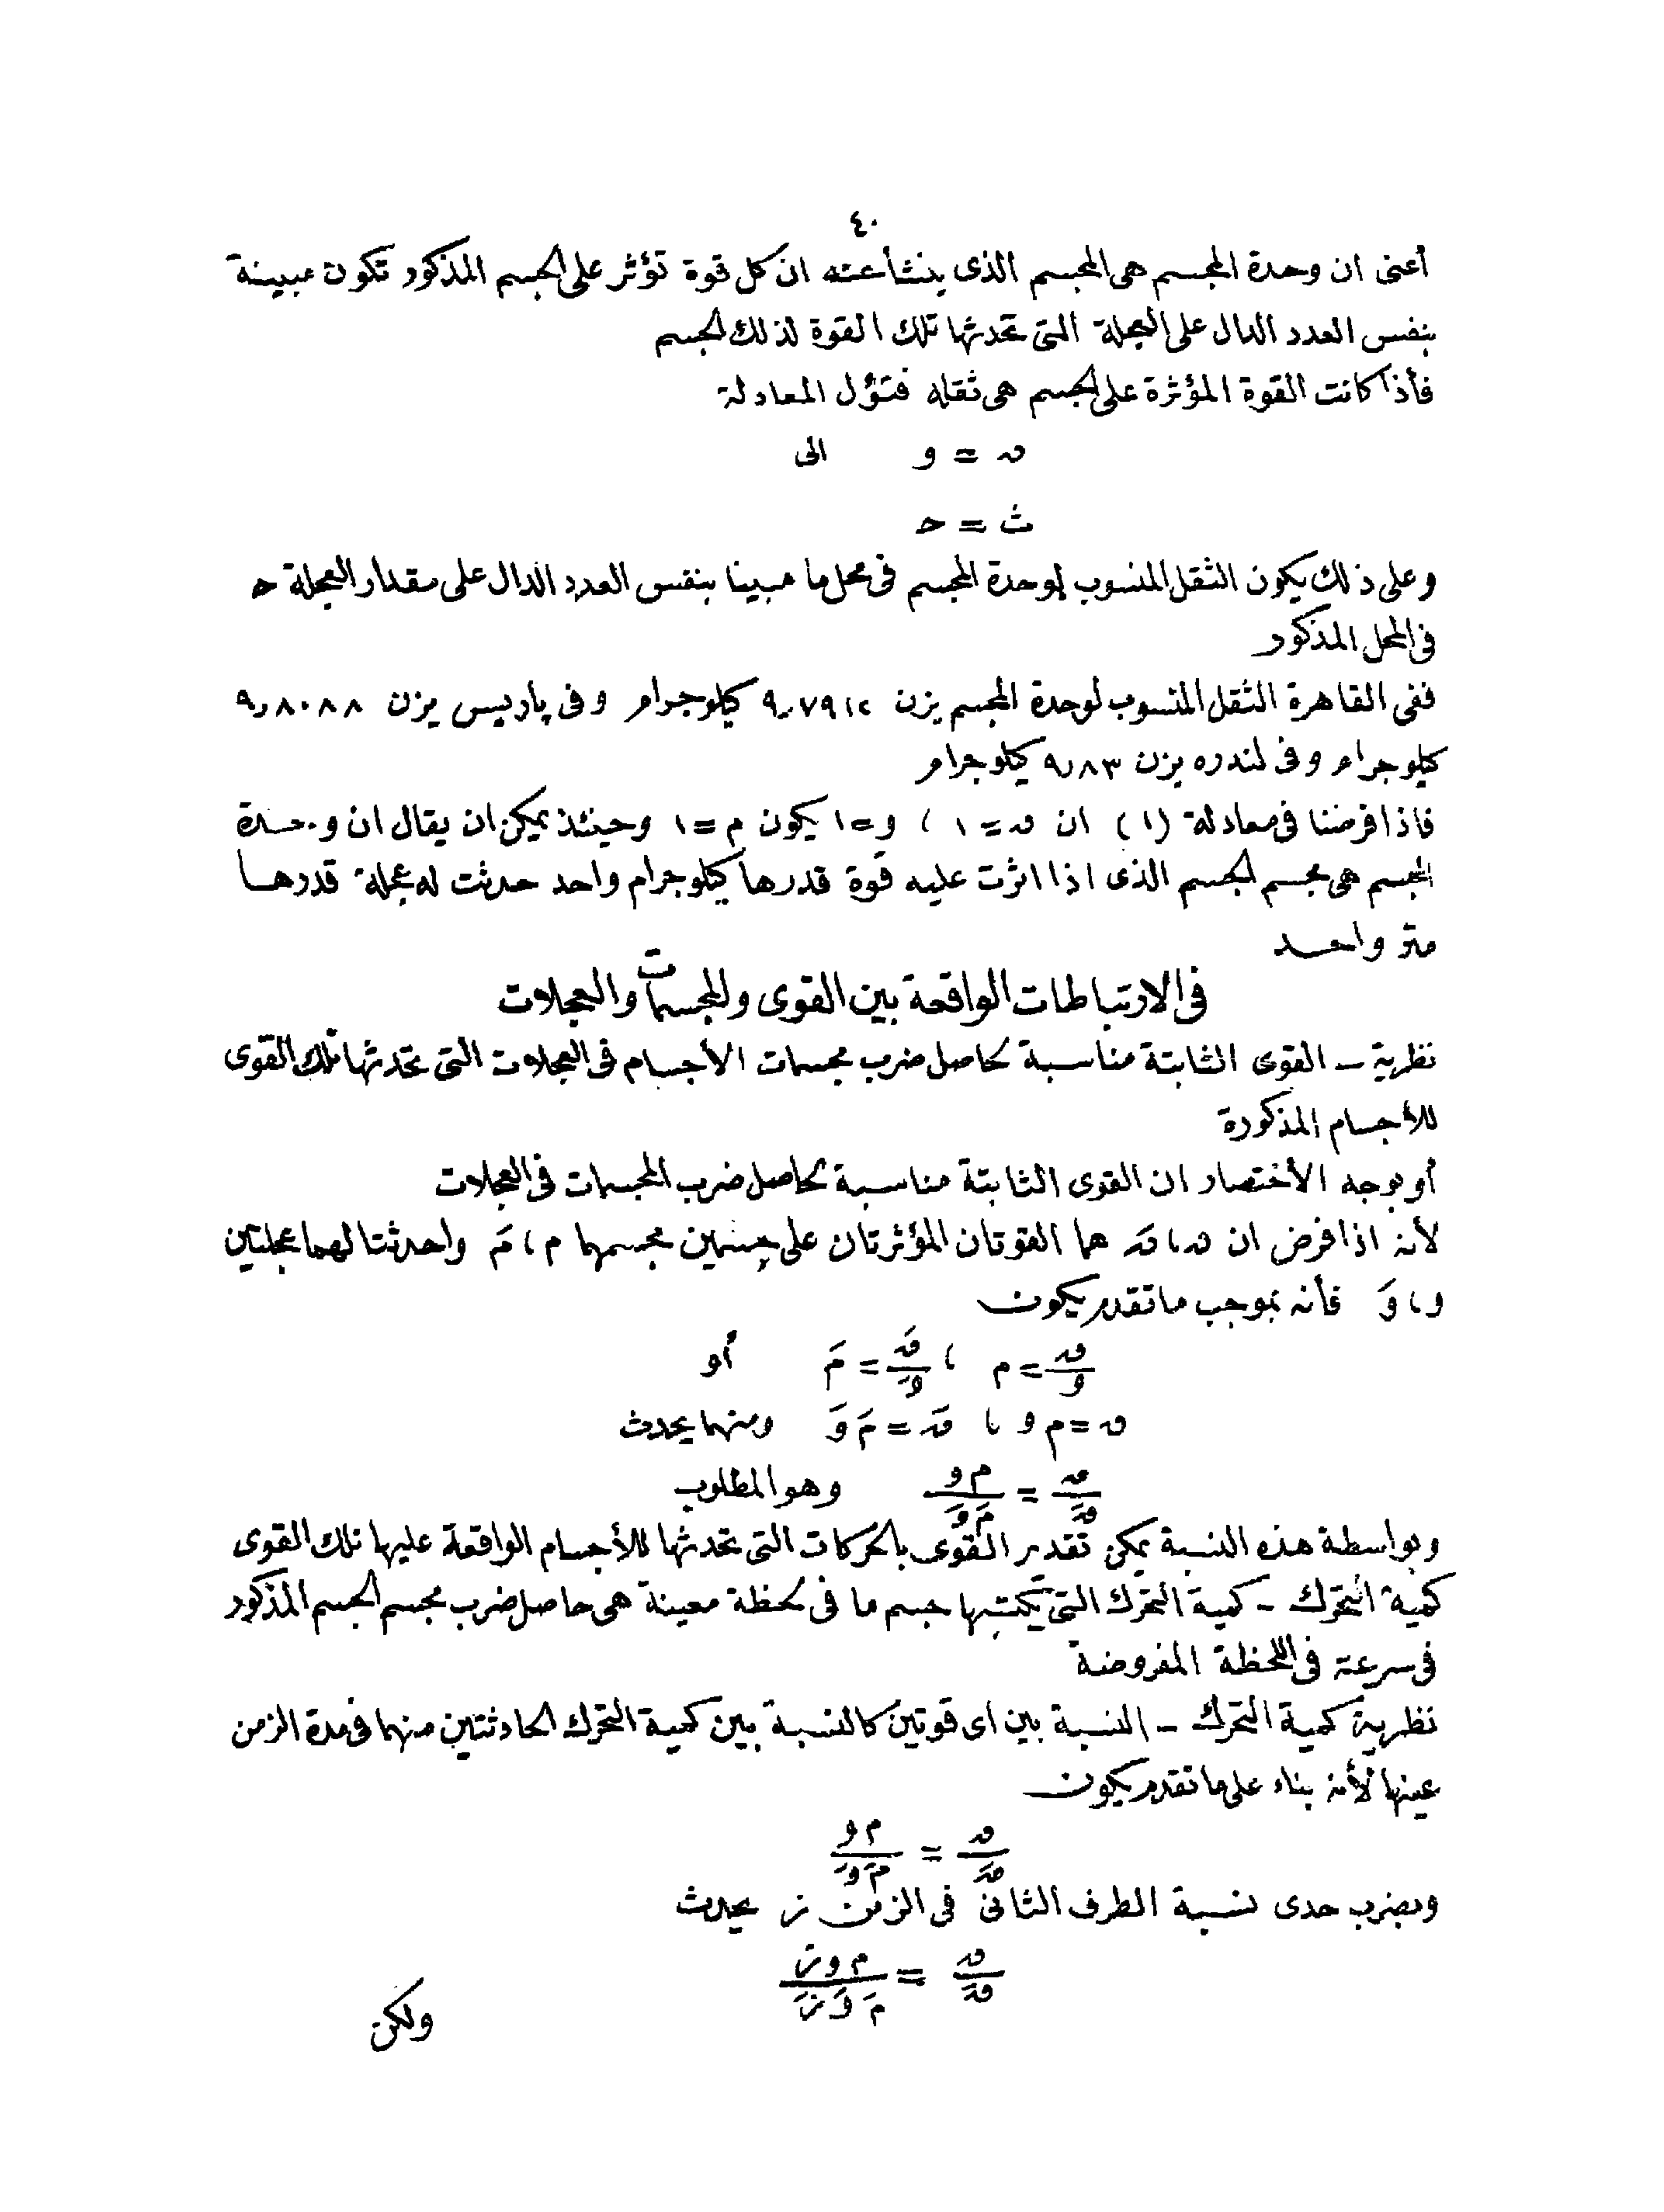 ٤٠
أعنى ان وحدة المجسم هى المجسم الذى ينشأعنه ان كل قوة تؤثر على الجسم المذكور تكون مبينة
بنفس العدد الدال على العجلة التى تحدثها تلك القوة لذلك الجسم
فأذا كانت القوة المؤثرة على الجسم هى ثقله فتؤل المعادلة
ق = و الى
ث = ح
وعلى ذلك يكون الثقل المنسوب لوحدة المجسم فى محل ما مبينا بنفس العدد الدال على مقدار العجلة ح
فى المحل المذكور
ففى القاهرة الثقل المنسوب لوحدة المجسم يزن ٩٫٧٩١٢ كيلوجرام وفى پاريس يزن ٩٫٨٠٨٨
كيلوجرام وفى لندره يزن ٩٫٨٣ كيلوجرام
فاذا فرضنا فى معادلة (١) ان ق = ١ ، و = ١ يكون م = ١ وحينئذ يمكن ان يقال ان وحدة
المجسم هى مجسم الجسم الذى اذا اثرت عليه قوة قدرها كيلوجرام واحد حدثت له عجلة قدرها
متر واحد
فى الارتباطات الواقعة بين القوى والمجسمات والعجلات
نظرية ـ القوى الثابتة مناسبة لحاصل ضرب مجسمات الأجسام فى العجلات التى تحدثها تلك القوى
للأجسام المذكورة
أو بوجه الأختصار ان القوى الثابتة مناسبة لحاصل ضرب المجسمات فى العجلات
لأنه اذا فرض ان ق ، قَ هما القوتان المؤثرتان على جسمين مجسمهما م ، مَ واحدثتا لهما عجلتين
و ، وَ فأنه بموجب ما تقدم يكون
ق/و = م ، قَ/وَ = مَ أو
ق = م و ، قَ = مَ وَ ومنهما يحدث
ق/قَ = م و/مَ وَ وهو المطلوب
وبواسطة هذه النسبة يمكن تقدير القوى بالحركات التى تحدثها للأجسام الواقعة عليها تلك القوى
كمية التحرك ـ كمية التحرك التى يكتسبها جسم ما فى لحظة معينة هى حاصل ضرب مجسم الجسم المذكور
فى سرعة فى اللحظة المفروضة
نظرية كمية التحرك ـ النسبة بين اى قوتين كالنسبة بين كمية التحرك الحادثتين منهما فى مدة الزمن
عينها لأنه بناء على ما تقدم يكون
ق/قَ = م و/مَ وَ
وبضرب حدى نسبة الطرف الثانى فى الزمن ز يحدث
ق/قَ = م و ز/مَ وَ زَ
ولكن